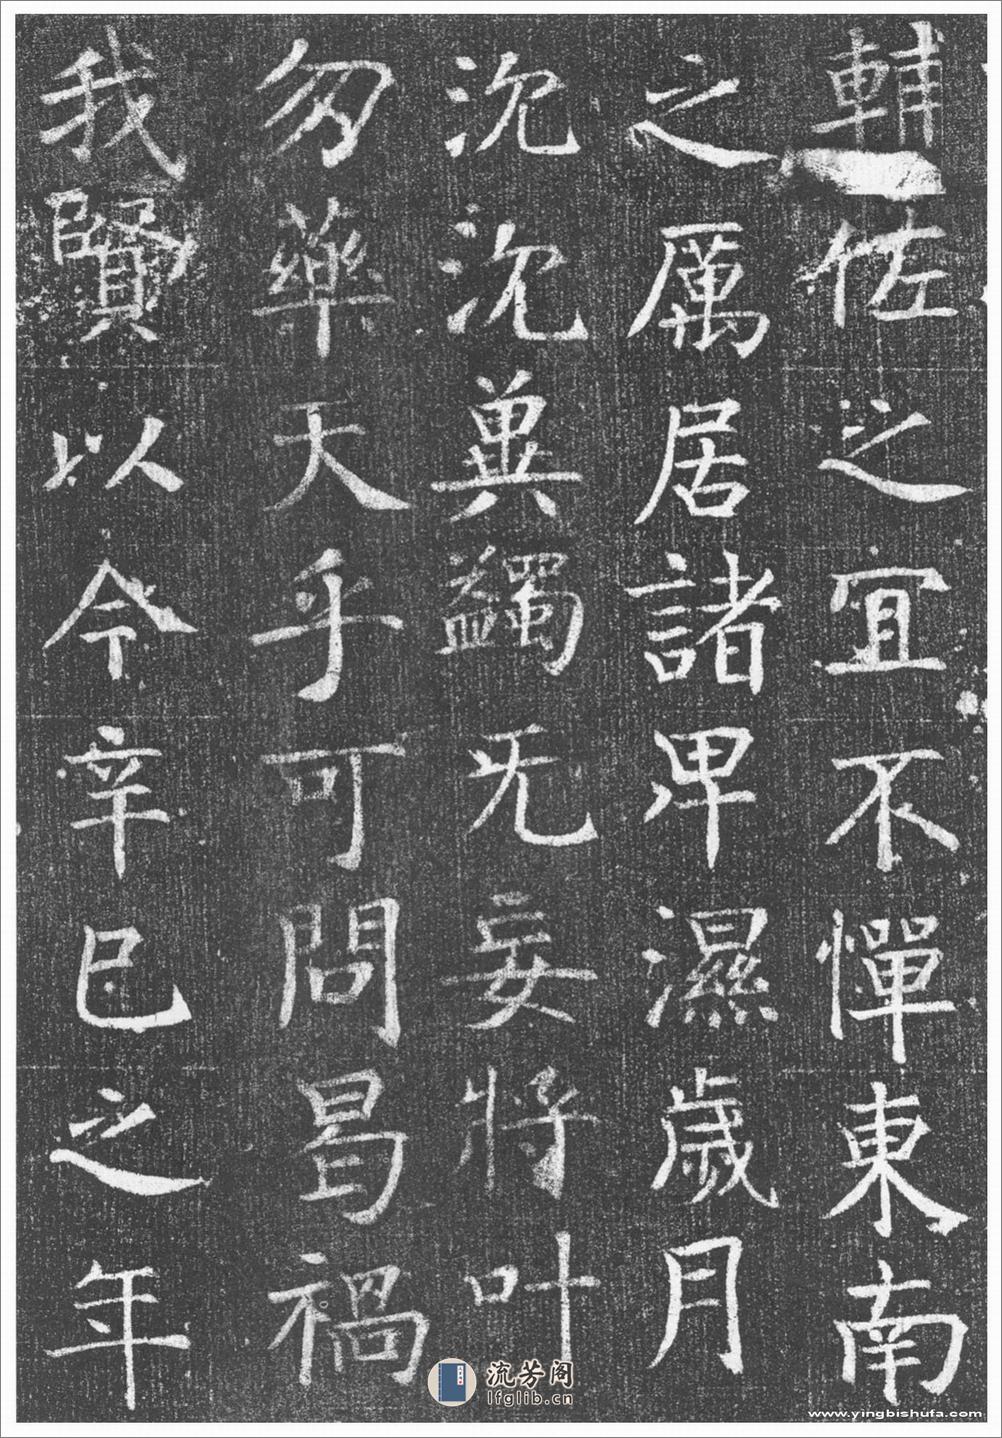 輔佐之宜不憚東南
之厲居諸卑濕歲月
沈沈冀蠲无妄將叶
勿藥天乎可問曷禍
我賢以今辛巳之年
流芳阁
lfglib.cn
www.yingbishufa.com